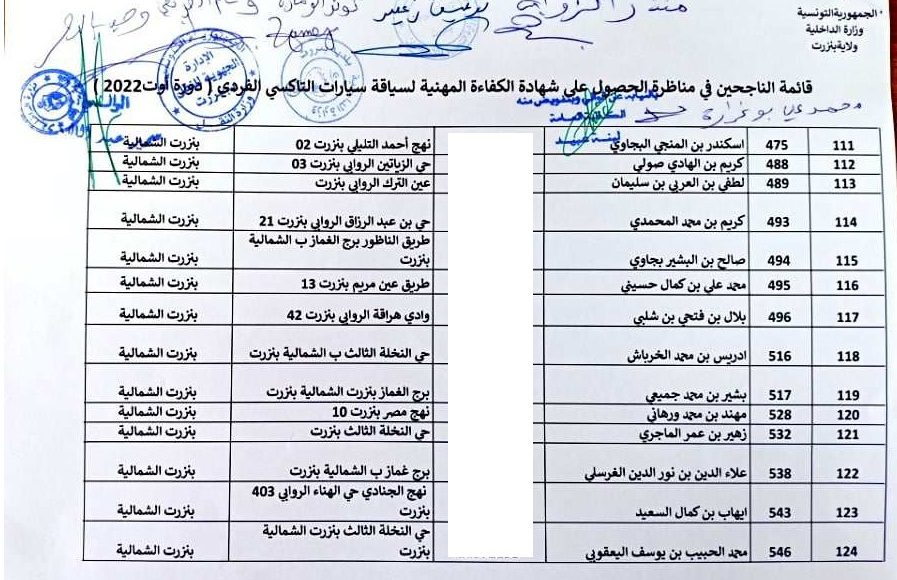 الجمهورية التونسية
وزارة الداخلية
ولاية بنزرت
قائمة الناجحين في مناظرة الحصول على شهادة الكفاءة المهنية لسياقة سيارات التاكسي الفردي ( دورة أوت2022 )
111 475 اسكندر بن المنجي البجاوي نهج أحمد التليلي بنزرت 02 بنزرت الشمالية
112 488 كريم بن الهادي صولي حي الزياتين الروابي بنزرت 03 بنزرت الشمالية
113 489 لطفي بن العربي بن سليمان عين الترك الروابي بنزرت بنزرت الشمالية
114 493 كريم بن محمد المحمدي حي بن عبد الرزاق الروابي بنزرت 21 بنزرت الشمالية
115 494 صالح بن البشير بجاوي طريق الناظور برج الغماز ب الشمالية
بنزرت بنزرت الشمالية
116 495 محمد علي بن كمال حسيني طريق عين مريم بنزرت 13 بنزرت الشمالية
117 496 بلال بن فتحي بن شلبي وادي هراقة الروابي بنزرت 42 بنزرت الشمالية
118 516 ادريس بن محمد الخرباش حي النخلة الثالث ب الشمالية بنزرت بنزرت الشمالية
119 517 بشير بن محمد جميعي برج الغماز بنزرت الشمالية بنزرت بنزرت الشمالية
120 528 مهند بن محمد ورهاني نهج مصر بنزرت 10 بنزرت الشمالية
121 532 زهير بن عمر الماجري حي النخلة الثالث بنزرت بنزرت الشمالية
122 538 علاء الدين بن نور الدين الغرسلي برج غماز ب الشمالية بنزرت بنزرت الشمالية
123 543 ايهاب بن كمال السعيد نهج الجنادي حي الهناء الروابي 403
بنزرت بنزرت الشمالية
124 546 محمد الحبيب بن يوسف اليعقوبي حي النخلة الثالث بنزرت الشمالية
بنزرت بنزرت الشمالية